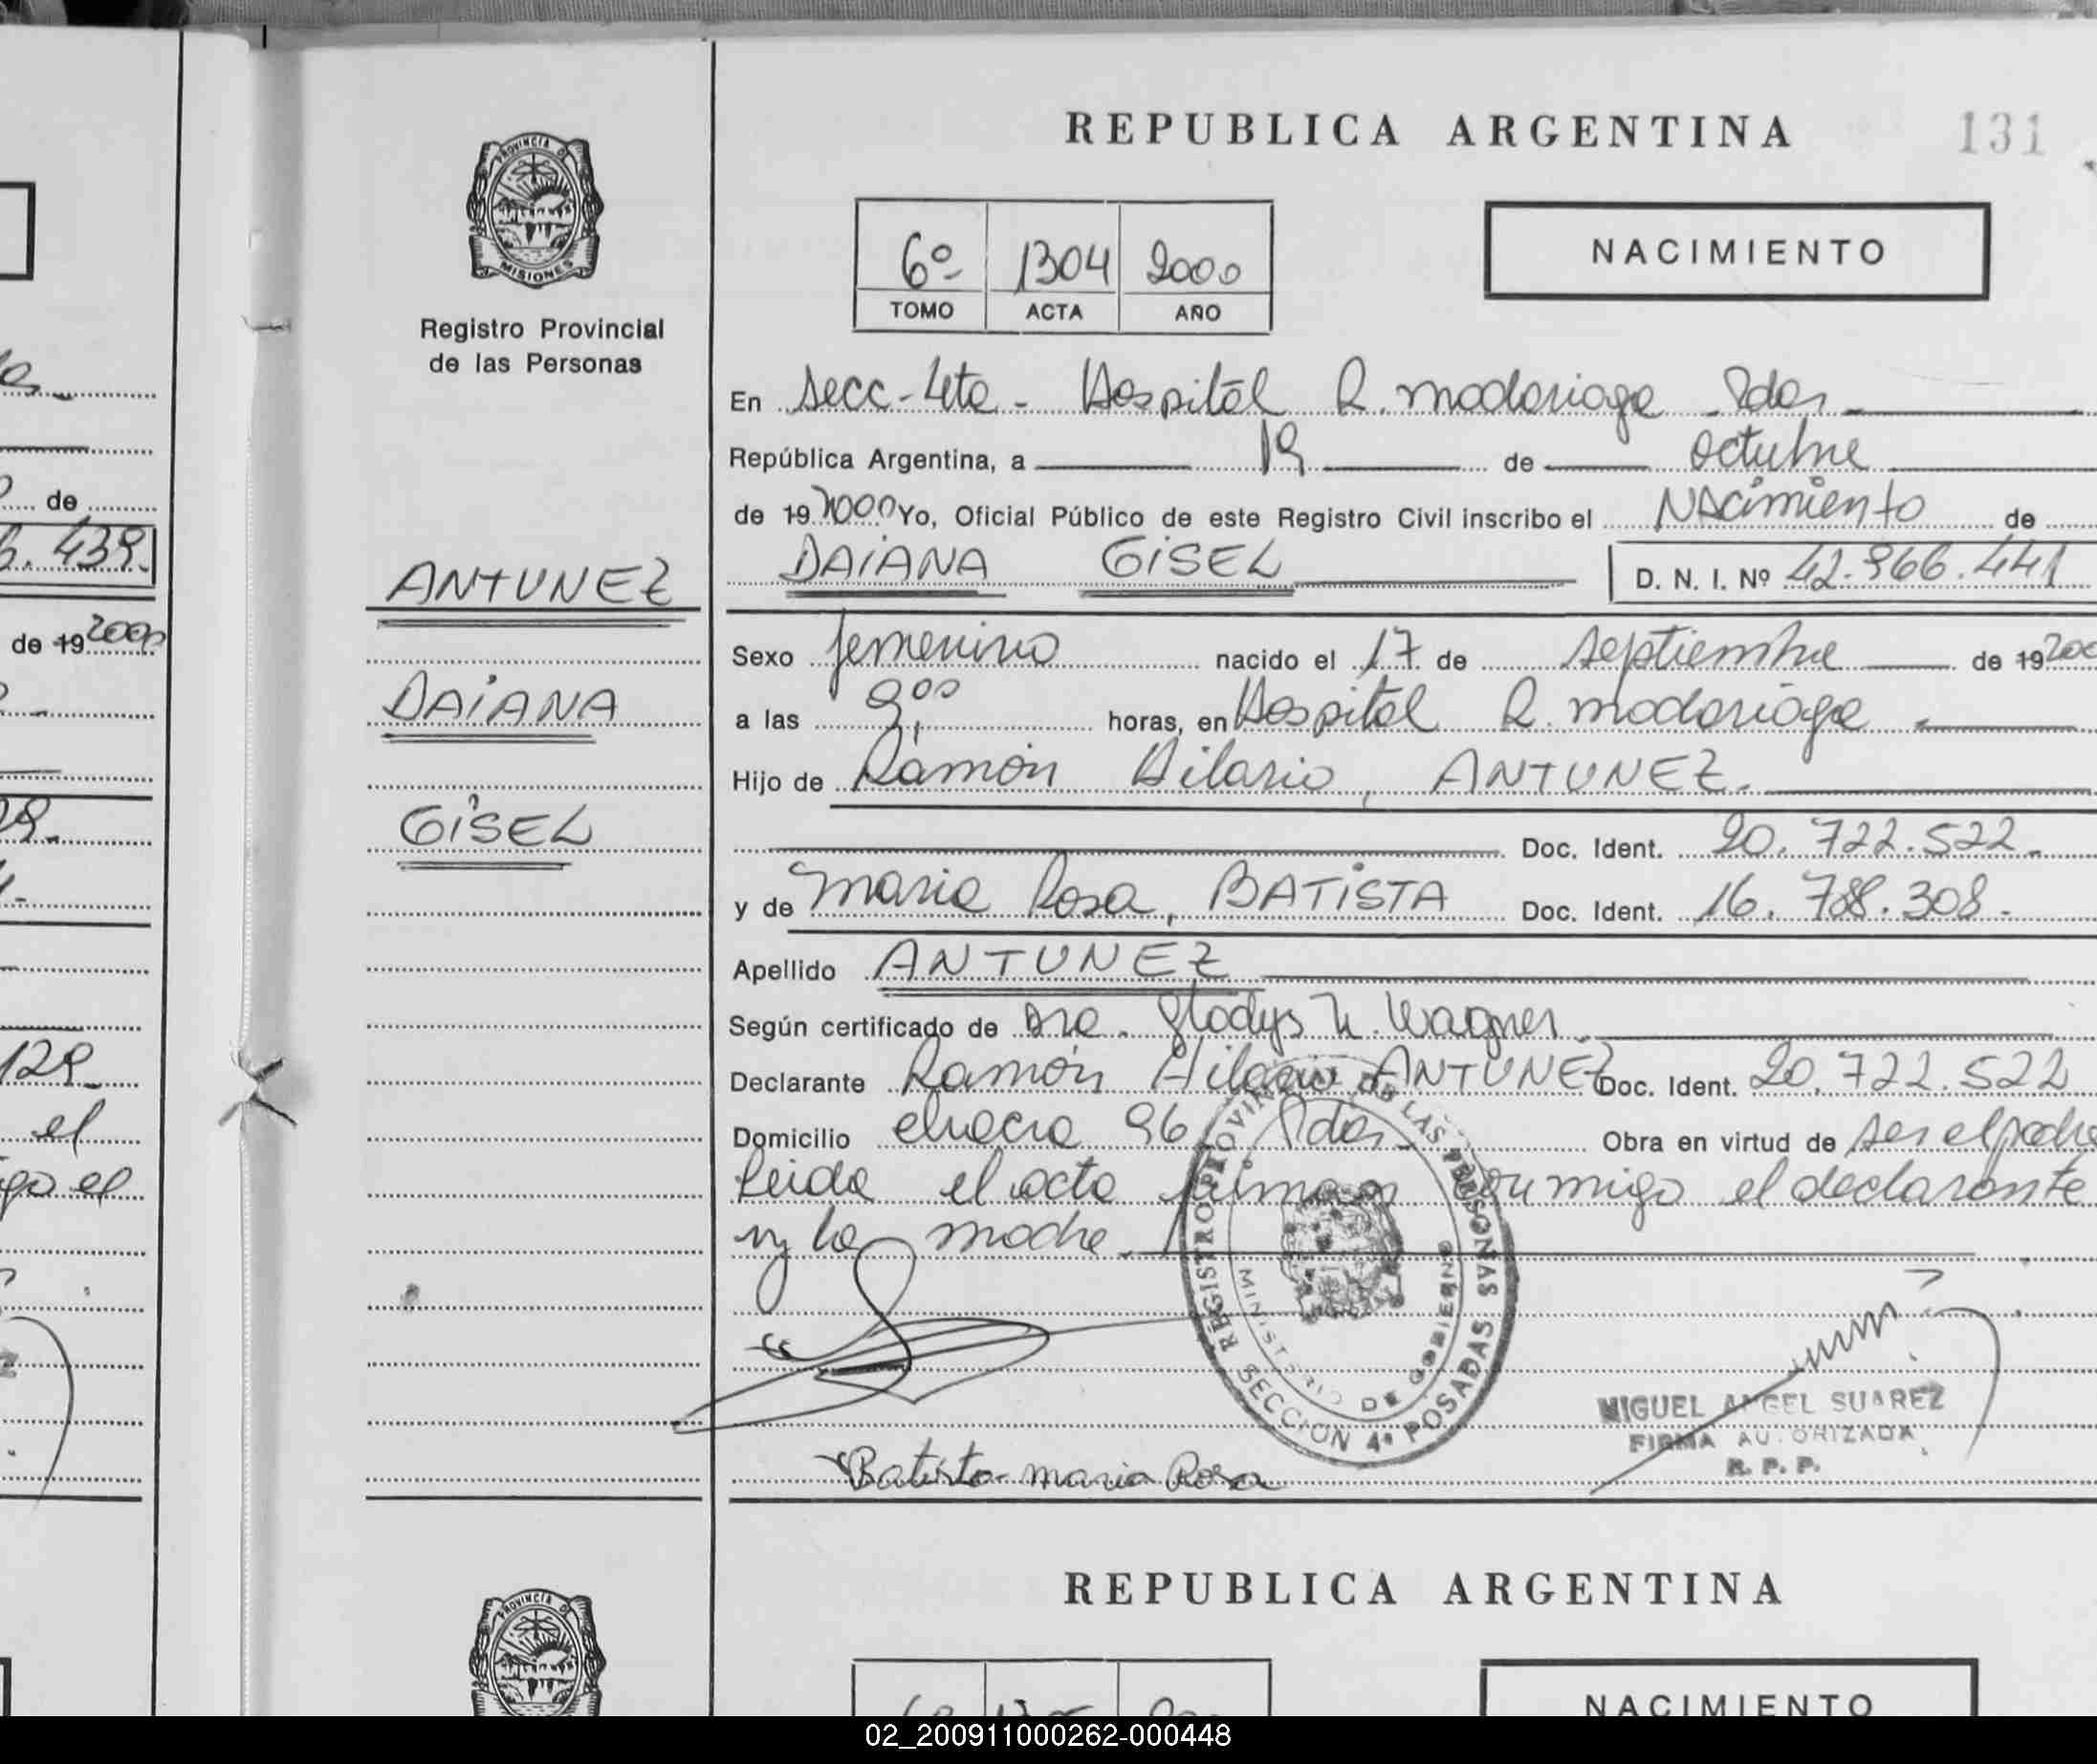 REPUBLICA ARGENTINA
131
PROVINCIA DE
MISIONES
Registro Provincial
de las Personas
6º 1304 2000
TOMO ACTA AÑO
NACIMIENTO
En Secc-4ta - Hospital R. Madariaga Pdas
República Argentina, a 19 de octubre
de 19 2000 Yo, Oficial Público de este Registro Civil inscribo el Nacimiento de
DAIANA GISEL D. N. I. Nº 42.966.441
ANTUNEZ
DAIANA
GISEL
Sexo femenino nacido el 17 de septiembre de 19 200
a las 9,00 horas, en Hospital R. Madariaga
Hijo de Ramón Hilario, ANTUNEZ.
Doc. Ident. 20.722.522
y de Maria Rosa, BATISTA Doc. Ident. 16.788.308.
Apellido ANTUNEZ
Según certificado de Dra. Gladys N. Wagner
Declarante Ramón Hilario ANTUNEZ Doc. Ident. 20.722.522
Domicilio chacra 96 Pdas. Obra en virtud de ser el padre
Leida el acta firman conmigo el declarante
y la madre.
REGISTRO PROVINCIAL DE LAS PERSONAS
MINISTERIO DE GOBIERNO
SECCION 4ª POSADAS
MIGUEL ANGEL SUAREZ
FIRMA AUTORIZADA
R. P. P.
Batista maria Rosa
de
439.
de 19 2000
129
el
go el
REPUBLICA ARGENTINA
PROVINCIA DE
NACIMIENTO
02_200911000262-000448